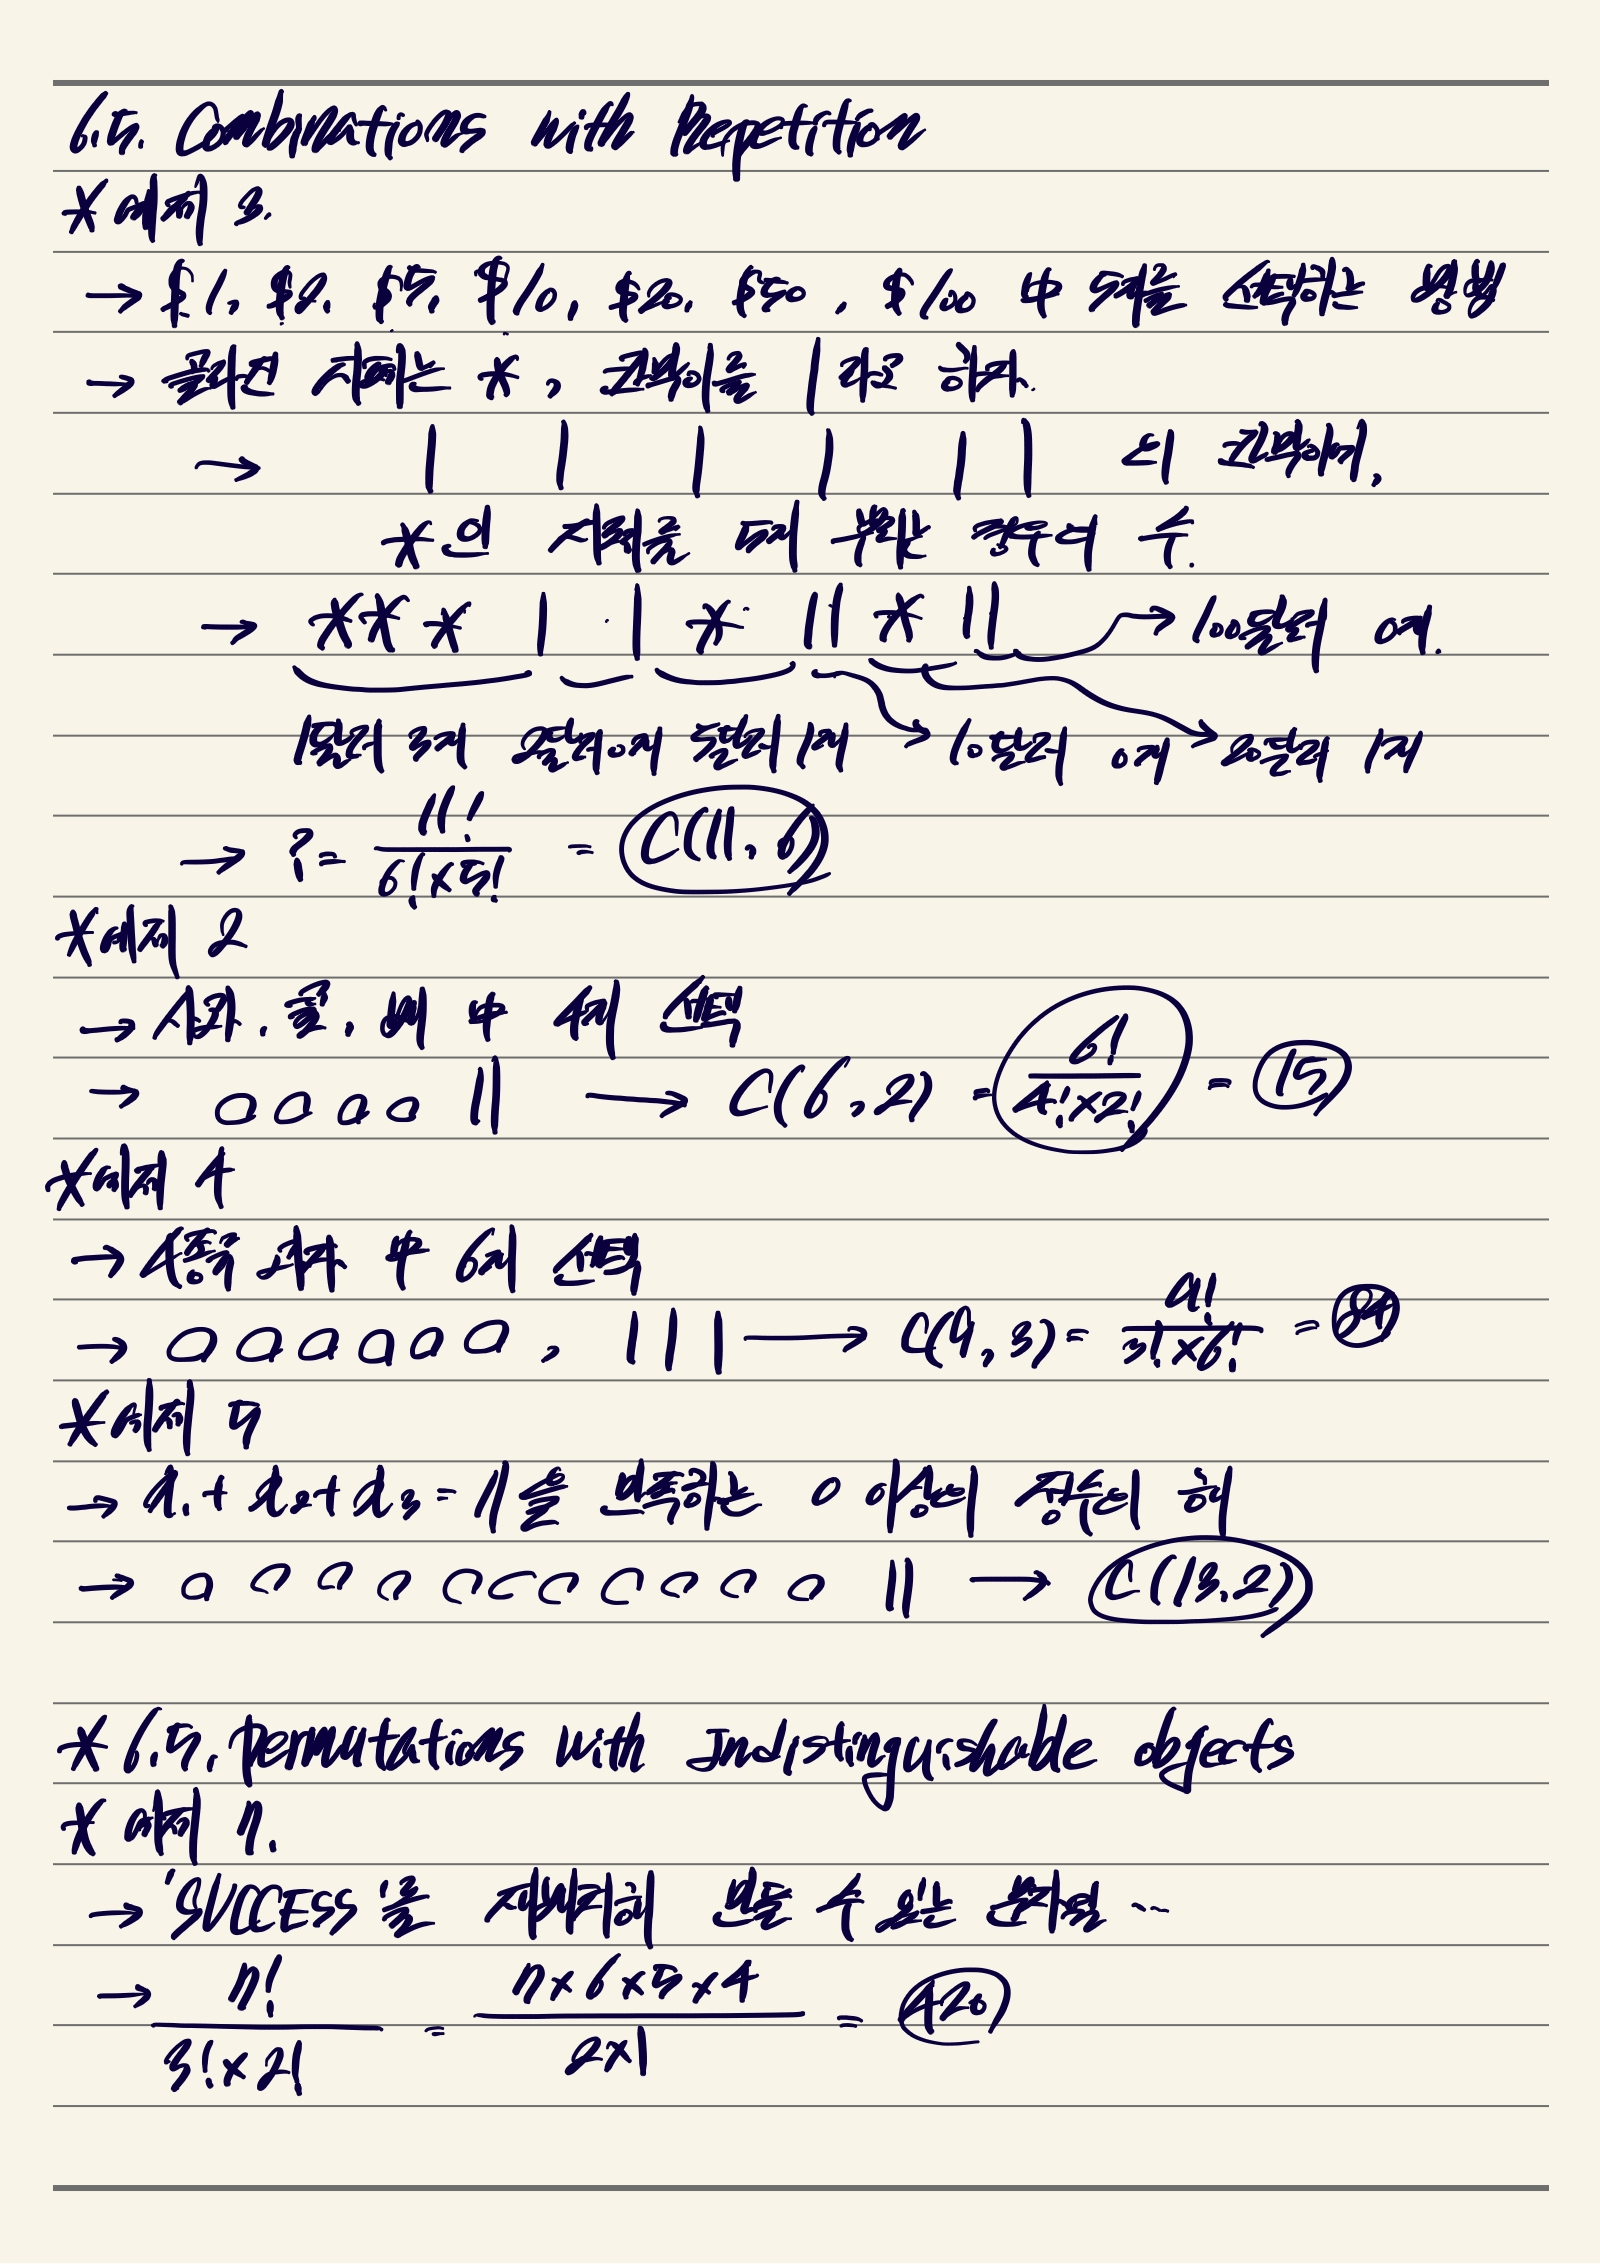 6.5. Combinations with Repetition
* 예제 3.
→ $1, $2, $5, $10, $20, $50, $100 中 5개를 선택하는 방법
→ 골라진 지폐는 *, 칸막이를 | 라고 하자.
→ | | | | | | 의 칸막이에,
*의 지폐를 5개 넣는 경우의 수.
→ * * * | | * | | * | | → 100달러 0개.
1달러 3개 2달러 0개 5달러 1개 → 10달러 0개 → 20달러 1개
→ ? = 11! / 6!×5! = C(11, 6)
* 예제 2
→ 사과, 귤, 배 中 4개 선택
→ o o o o | | → C(6, 2) = 6! / 4!×2! = 15
* 예제 4
→ 4종류 과자 中 6개 선택
→ o o o o o o , | | | → C(9, 3) = 9! / 3!×6! = 84
* 예제 5
→ x₁ + x₂ + x₃ = 11을 만족하는 0 이상의 정수의 해
→ o o o o o o o o o o o | | → C(13, 2)
* 6.5. permutations with Indistinguishable objects
* 예제 7.
→ 'SUCCESS'를 재배치해 만들 수 있는 문자열 ...
→ 7! / 3!×2! = 7×6×5×4 / 2×1 = 420